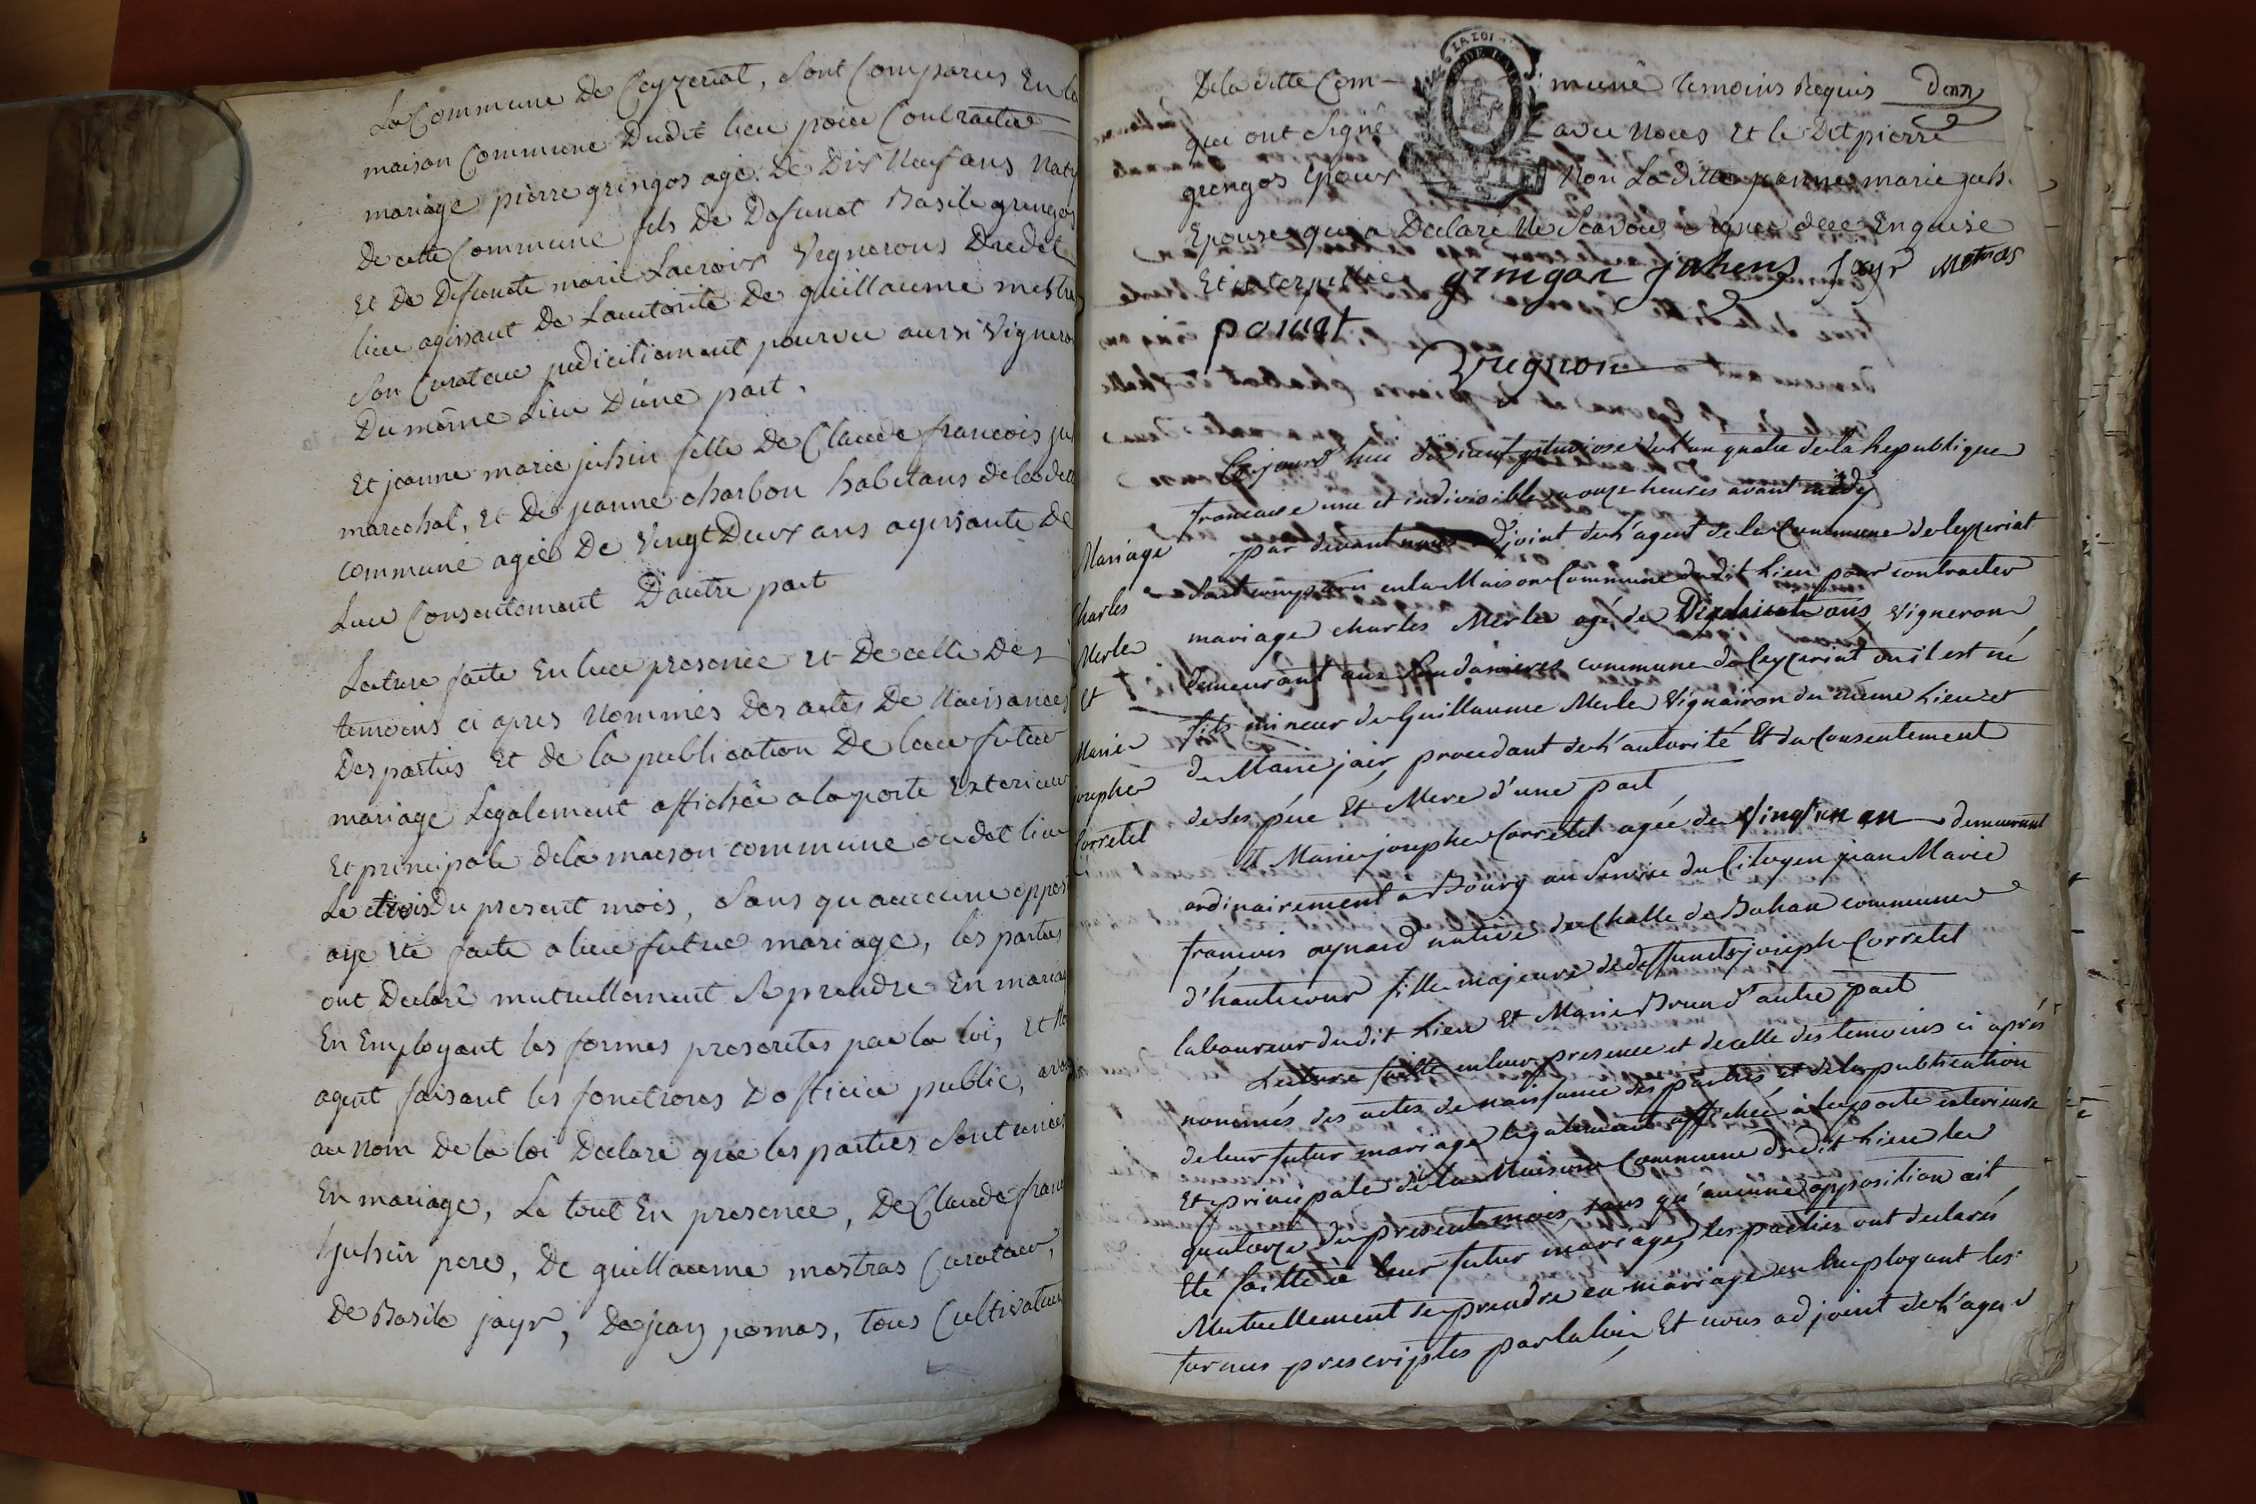 La Commune de Ceyzeriat, sont Comparus En la
maison Commune Dudit lieu pour Contracter
mariage pierre gringos agé De Dix Neuf ans Natif
De cette Commune fils De Defunct Basile gringos
Et De Defuncte marie Lacroix Vignerons Dudit
lieu agissant De L'autorité De guillaume mestras
Son Curateur judicitiement pourvu aussi Vigneron
Du même Lieu D'une part.
Et jeanne marie juhin fille De Claude francois juh
marechal, et De jeanne charbon habitans de la ditte
commune agée De Vingt Deux ans agissante De
Leur Consentement D'autre part
Lecture faite En leur presence et De celle Des
temoins ci apres Nommés Des actes De Naissances
Des parties Et de la publication De leur futur
mariage Legalement affichée a la porte Exterieur
Et principale de la maison commune dudit lieu
Le trois Du present mois, Sans qu aucune oppos
aye Eté faite a leur futur mariage, les parties
ont Declaré mutuellement Se prendre En mariag
En Employant les formes prescrites par la loi, et No
agent faisant les fonctions D'officier public, avon
au Nom De la loi Declaré que les parties Sont unies
En mariage, Le tout En presence, De Claude franc
juhin pere, De guillaume mestras Curateur,
De Basile jayr, De jean pomas, tous Cultivateur
De la ditte Com- mune temoins Requis
qui ont Signé avec Nous et le Dit pierre
gringos Epoux Non La ditte jeanne marie juh.
Epouse qui a Declaré Ne Scavoir Signer de ce Enquise
Et interpellée gringoz juhens Jayr Metras
Vugnon
Cejourd'hui dixneuf pluviose de l'an quatre de la Republique
francaise une et indivisible a onze heures avant midy
par devant nous adjoint de l'agent de la Commune de Ceyzeriat
Sont comparu en la Maison Commune dudit Lieu pour contracter
mariage charles Merle agé de Dixhuit ans, Vigneron
demeurant aux Soudanieres commune de Ceyzeriat ou il est né
fils mineur de Guillaume Merle Vignairon du même Lieu et
de Marie jair, procedant de L'autorité Et du Consentement
de Ses pére Et Mere d'une part
Mariage
Charles
Merle
Et
Marie
josephe
Corretel
Et Marie josephe Corretel agée de Vingt un an demeurant
ordinairement a Bourg au Service du Citoyen jean Marie
francois aynard native de Challe de Bohan commune
d'hautecour fille majeure de deffuncts joseph Corretel
laboureur dudit Lieu Et Marie Brun d'autre part
Lecture faitte en leur presence et de celle des temoins ci aprés
nommés des actes de naissance des parties et de la publication
de leur futur mariage legalement affichée à la porte exterieure
Et principale de la Maison Commune dudit Lieu le
quatorze du present mois, sans qu'aucune opposition ait
Eté faitte à leur futur mariage, les parties ont declarés
Mutuellement se prendre en mariage en Employant les
formes prescriptes par la loi, Et nous adjoint de L'agent